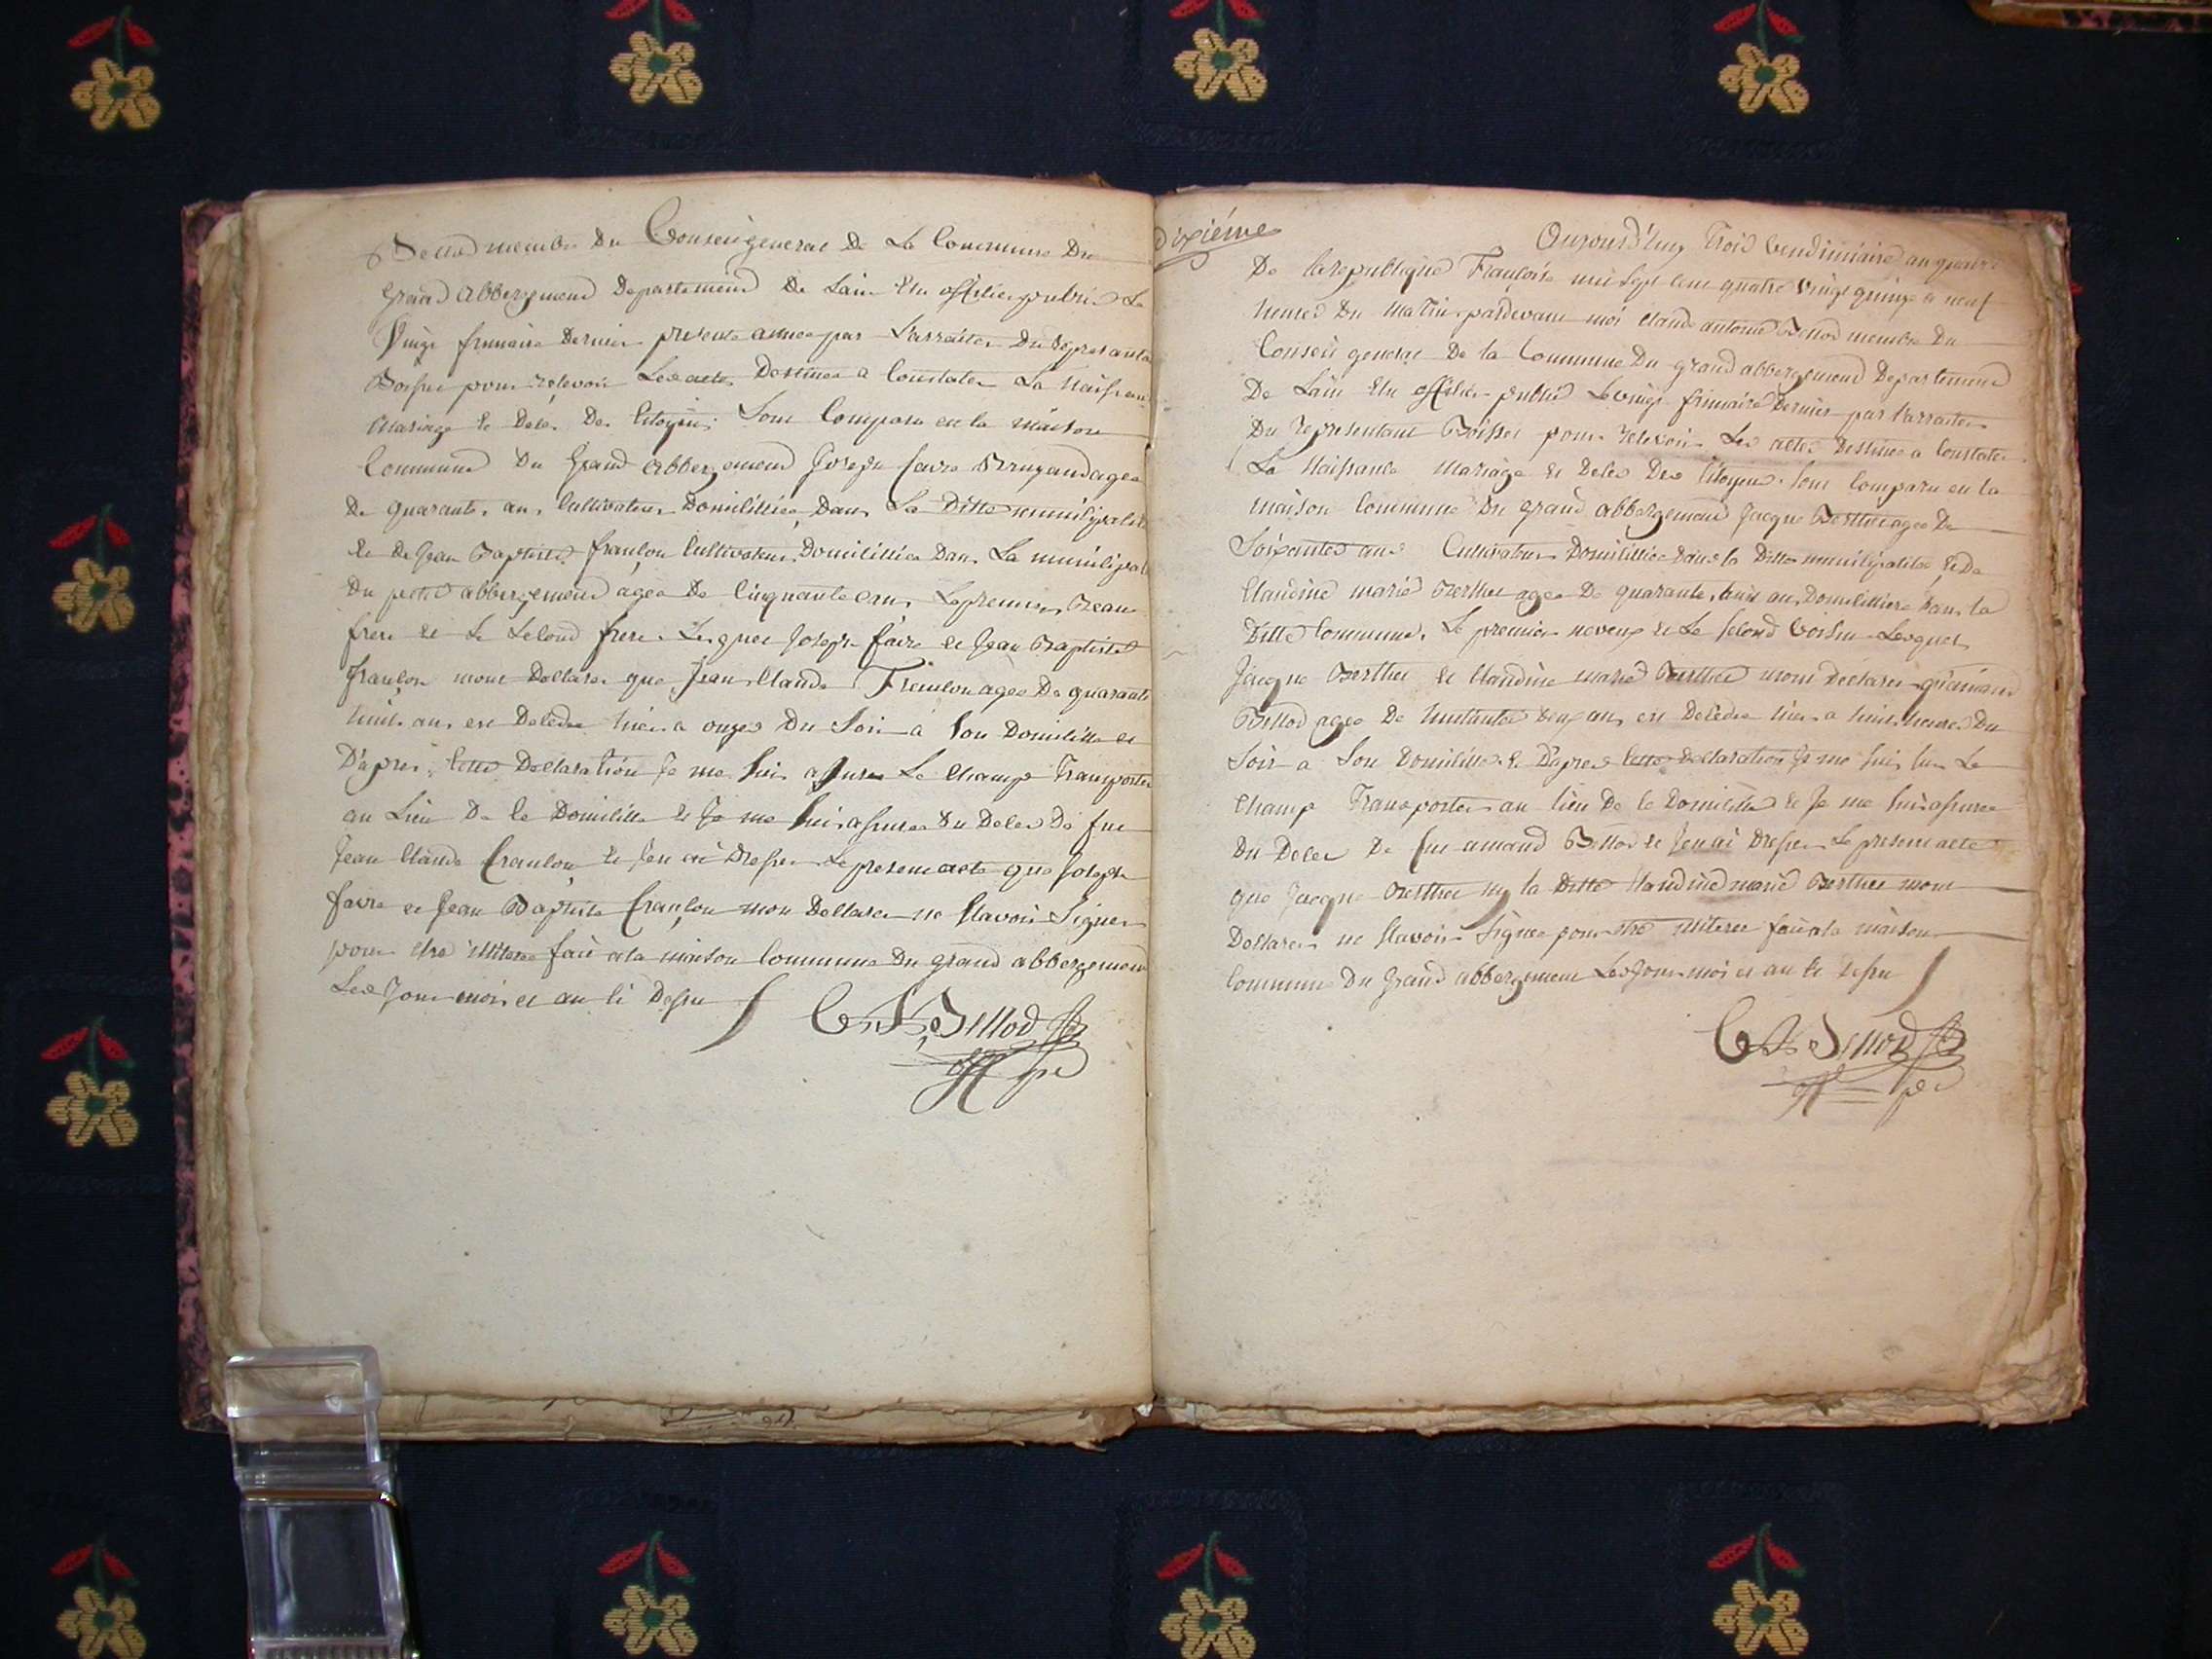 Bellod membre Du Conseil general De La Commune Du
grand abbergement Departement De Lain Elu officier public Le
Vingt frimaire Dernier presente annee par Larraiter Du representa
Boisset pour recevoir Les actes Destines a Constater La Naissan
Mariage et Deces Des Citoyens Sont Comparu en la maison
Commune Du Grand abbergement Joseph favre agee
De quarante ans Cultivateur Domicilliee Dans La Ditte municipalite
et De Jean Baptiste françon Cultivateur Domicilliee Dans La municipal
Du petit abbergement agee De Cinquante ans Le premier Beau
frere et Le Second frere Lesquel Joseph favre et Jean Baptiste
françon mont Declarer que Jean Claude agee De quarante
huit ans est Decedee hier a onze Du Soir a Son Domicille et
D'apres cette Declaration Je me Suis Le Champ Transporter
au Lieu De Ce Domicille et Je me Suis assuree Du Deces De feu
Jean Claude françon et Jen ai Dresser Le present acte que Joseph
favre et Jean Baptiste françon mon Declarer ne Scavoir Signer
pour etre fait a la maison Commune Du grand abbergement
Les Jour mois et an Ci Dessu
C A Bellod
off pu
dixiéme
Aujourd'huy Trois Vendimiaire an quatre
De la republique Françoise mil Sept Cent quatre Vingt quinze a neuf
heures Du Matin pardevant moi Claude antoine Bellod membre Du
Conseil general De la Commune Du grand abbergement Departement
De Lain Elu officier public Le vingt frimaire Dernier par Larraiter
Du representant Boisset pour recevoir Les actes Destines a Constater
La Naissance Mariage et Deces Des Citoyens Sont Comparu en la
maison Commune Du grand abbergement Jacque Berthet agee De
Soixante ans Cultivateur Domicilliee Dans la Ditte municipalitee et De
Claudine marie Berthet agee De quarante huit ans Domicilliere Dans la
Ditte Commune Le premier neveux et Le Second Lesquel
Jacque Berthet et Claudine marie Berthet mont Declarer
Bellod agee De ans est Decedee hier a huit heures Du
Soir a Son Domicille et D'apres cette Declaration Je me Suis Sur Le
Champ Transporter au Lieu De Ce Domicille et Je me Suis assuree
Du Deces De feu amand Bellod et Jen ai Dresser Le present acte
que Jacque Berthet ny la Ditte Claudine marie Berthet mont
Declarer ne Scavoir Signer pour etre fait a la maison
Commune Du grand abbergement Les Jour moi et an Ci Dessu
C A Bellod
off pu